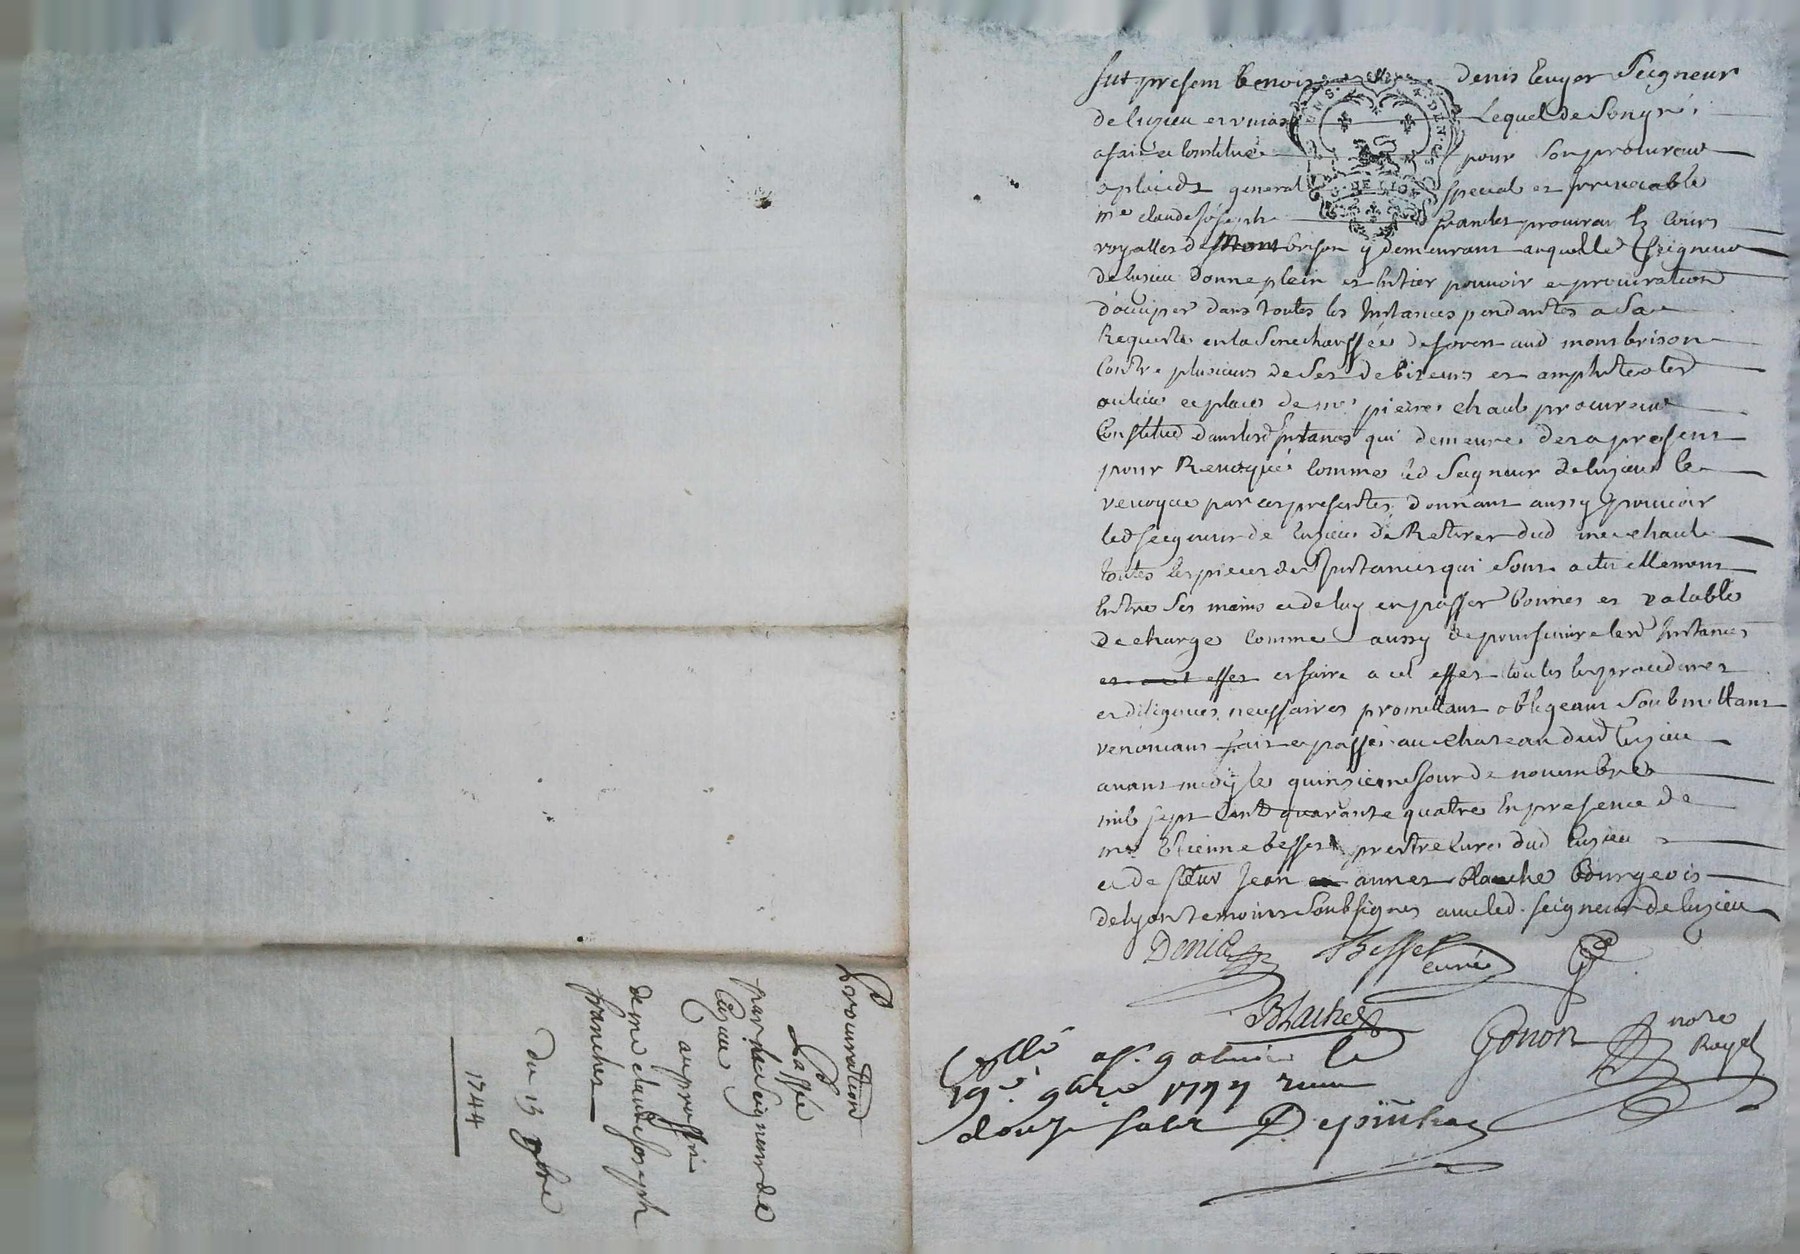 fut presem benoit denis Ecuyer Seigneur
de Cuzieu et Lequel de Son gré
a fait et Constitué pour Son procureur
general special et irrevocable
me claude Joseph franchet procureur Es Cours
royalles de Montbrison y demeurant auquelle Seigneur
de Cuzieu donne plein et Entier pouvoir et procuration
d'occuper dans toutes les Instances pendantes a Sa
Requeste en la Senechaussée de forest aud montbrison
Contre plusieurs de Ses debiteurs et
au lieu et place de me pierre chaul procureur
Constitué dans lesd Instances qui demeure des a present
pour Revoqué comme led Seigneur de Cuzieu le
revoque par ces presentes donnant aussy pouvoir
led seigneur de Cuzieu de Retirer dud me chaul
toutes les pieces des Instances qui sont actuellement
Entre Ses mains et de luy en passer bonnes et valable
decharge comme aussy de poursuivre lesd Instances
et faire a cet effet toutes les procedures
et diligences necessaires promettant obligeant Soubmettant
renoncant fait et passé au chateau dud Cuzieu
avant midy le quinzieme Jour de novembre
mil sept Cent quarante quatre En presence de
me Etienne besset prestre curé dud Cuzieu
et de sieur Jean blanche Bourgeois
de lyon temoins Soubsignes avec led. seigneur de Cuzieu
Denis Besset
curé
Blache
Gonon notre
Royal
Collé a St galmier le
19e 9bre 1744 recu
douze sols
Procuration
Passée
par le Seigneur de
Cuzieu
au proffit
de me claude Joseph
franchet
Du 15 9bre
1744